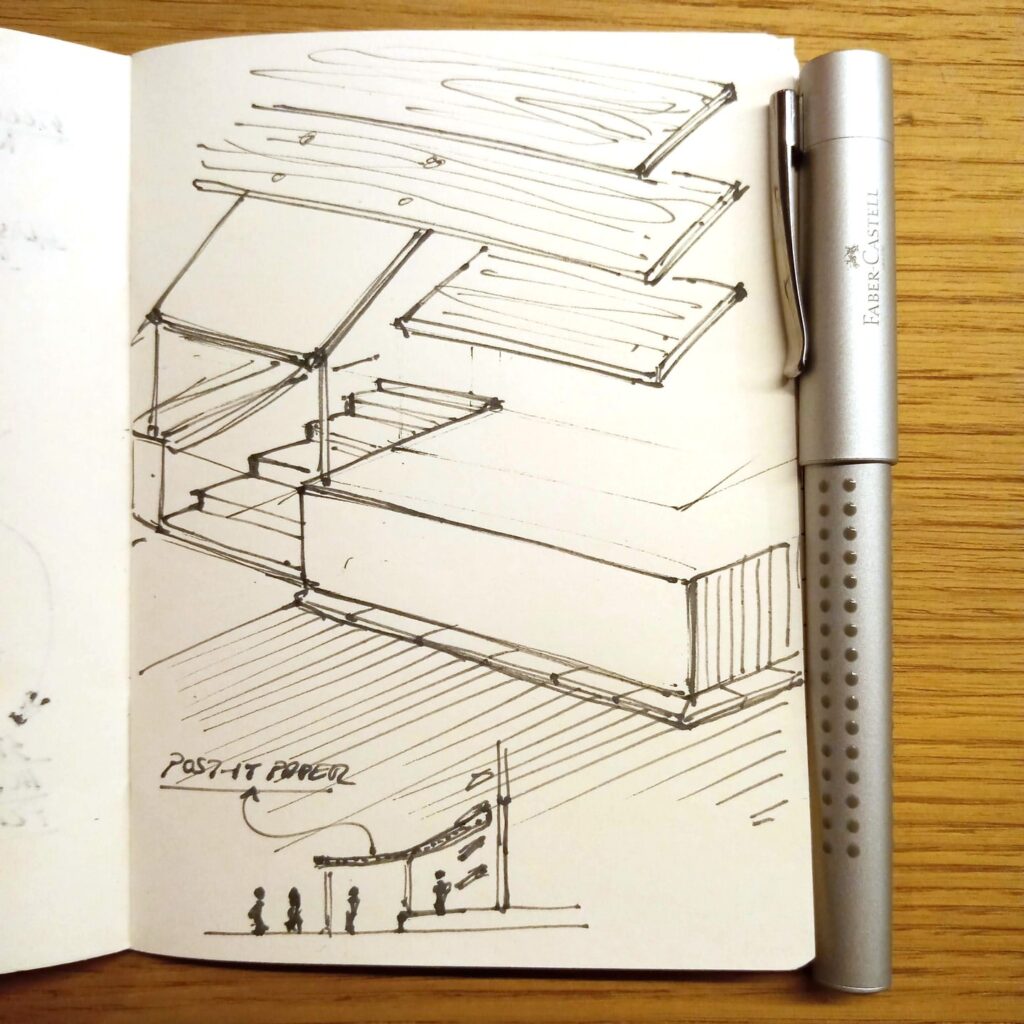 POST-IT PAPER
FABER-CASTELL